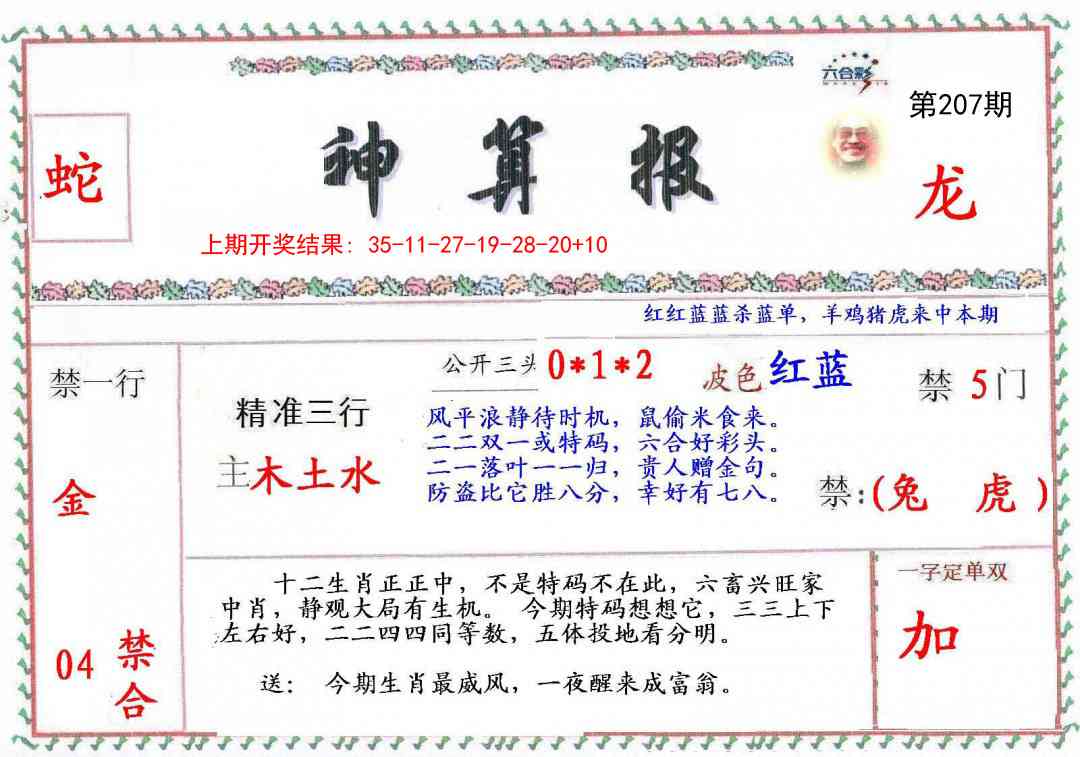 六合彩
第207期
蛇
神算报
龙
上期开奖结果：35-11-27-19-28-20+10
红红蓝蓝杀蓝单，羊鸡猪虎来中本期
禁一行
金
04 禁合
精准三行
主木土水
公开三头 0*1*2
波色 红蓝
禁 5 门
风平浪静待时机，鼠偷米食来。
二二双一或特码，六合好彩头。
二一落叶一一归，贵人赠金句。
防盗比它胜八分，幸好有七八。
禁:(兔 虎)
十二生肖正正中，不是特码不在此，六畜兴旺家
中肖，静观大局有生机。 今期特码想想它，三三上下
左右好，二二四四同等数，五体投地看分明。
送： 今期生肖最威风，一夜醒来成富翁。
一字定单双
加